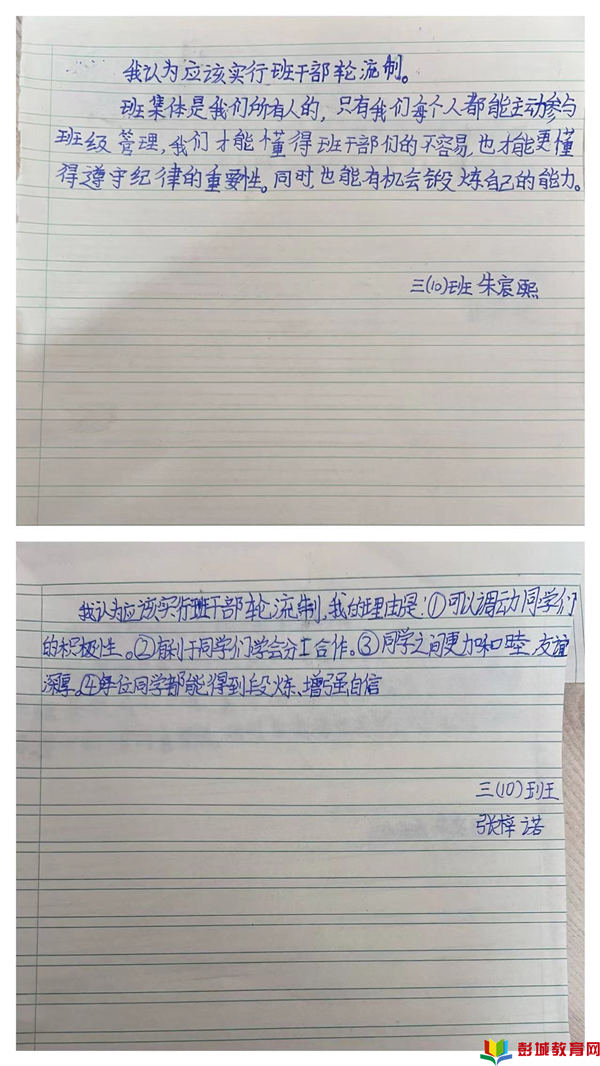 我认为应该实行班干部轮流制。
班集体是我们所有人的，只有我们每个人都能主动参与
班级管理，我们才能懂得班干部们的不容易，也才能更懂
得遵守纪律的重要性。同时，也能有机会锻炼自己的能力。
三(10)班 朱宸熙
我认为应该实行班干部轮流制，我的理由是：①可以调动同学们
的积极性。②有利于同学们学会分工合作。③同学之间更加和睦，友谊
深厚。④每位同学都能得到段炼、增强自信
三(10)班
张梓诺
彭城教育网